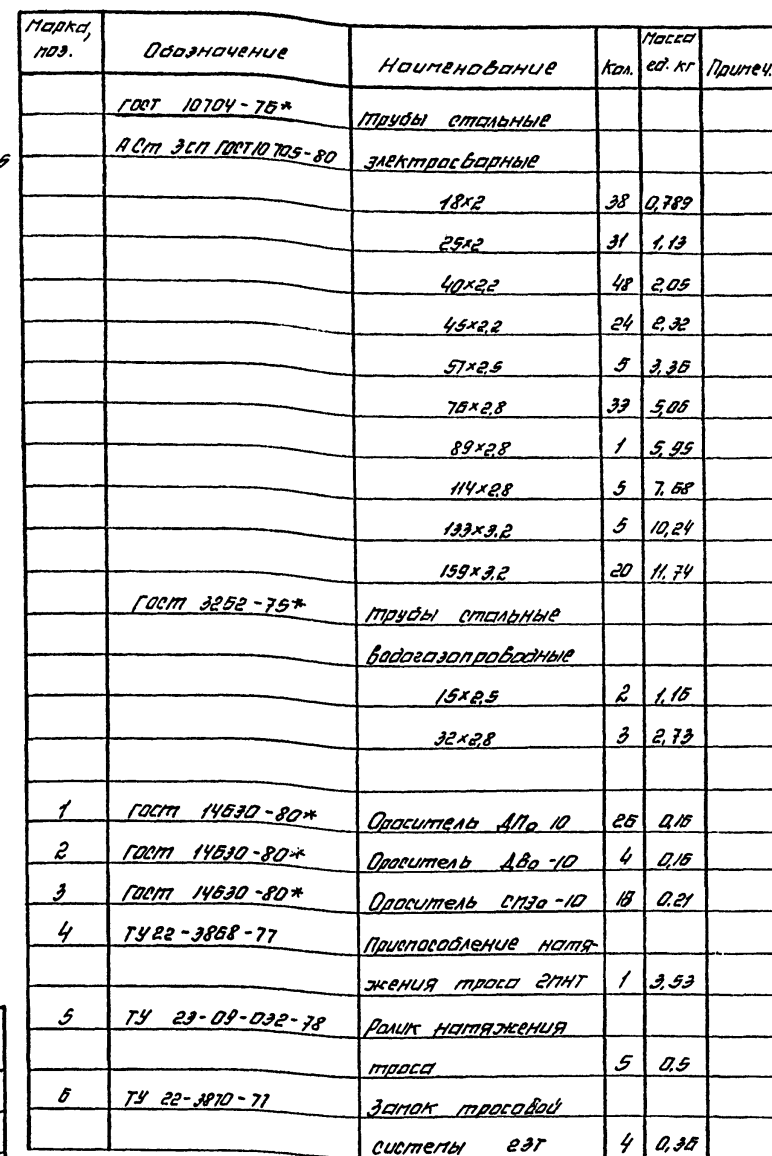 Марка, поз. Обозначение Наименование Кол. Масса ед. кг Примеч.
ГОСТ 10704-76* Трубы стальные
А Ст 3сп ГОСТ 10705-80 электросварные
18×2 38 0,789
25×2 31 1,13
40×2,2 48 2,05
45×2,2 24 2,32
57×2,5 5 3,36
76×2,8 33 5,06
89×2,8 1 5,95
114×2,8 5 7,68
133×3,2 5 10,24
159×3,2 20 11,74
ГОСТ 3262-75* Трубы стальные
водогазопроводные
15×2,5 2 1,16
32×2,8 3 2,73
1 ГОСТ 14630-80* Ороситель ДПо 10 26 0,16
2 ГОСТ 14630-80* Ороситель ДВо-10 4 0,16
3 ГОСТ 14630-80* Ороситель СПЭо-10 18 0.21
4 ТУ 22-3868-77 Приспособление натя-
жения троса 2ПНТ 1 3,53
5 ТУ 29-09-032-78 Ролик натяжения
троса 5 0.5
6 ТУ 22-3870-77 Замок тросовой
системы 2ЗТ 4 0,36